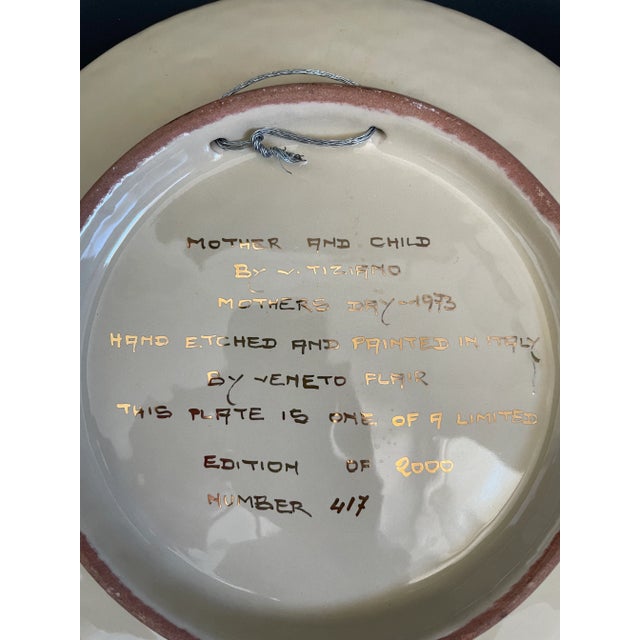 MOTHER AND CHILD
By V. TIZIANO
MOTHERS DAY-1973
HAND ETCHED AND PAINTED IN ITALY
By VENETO FLAIR
THIS PLATE IS ONE OF A LIMITED
EDITION OF 2000
NUMBER 417